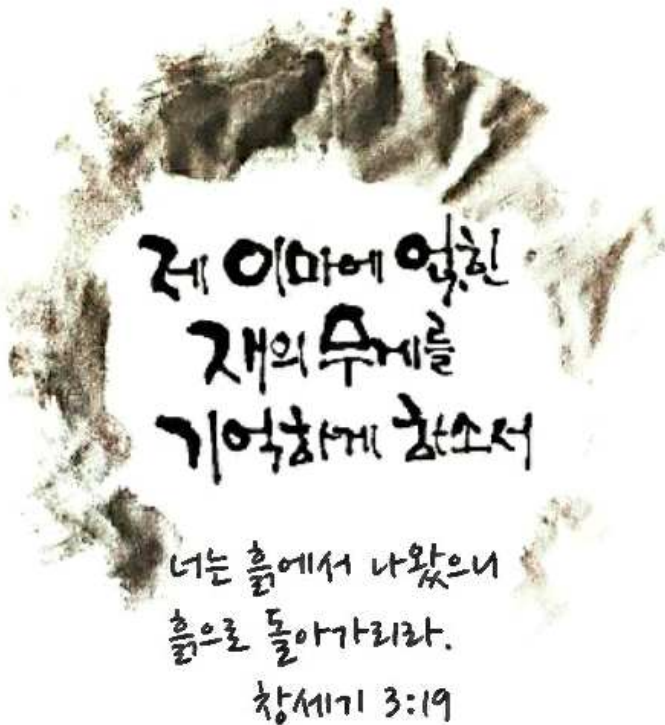 제 이마에 얹힌
재의 무게를
기억하게 하소서
너는 흙에서 나왔으니
흙으로 돌아가리라.
창세기 3:19